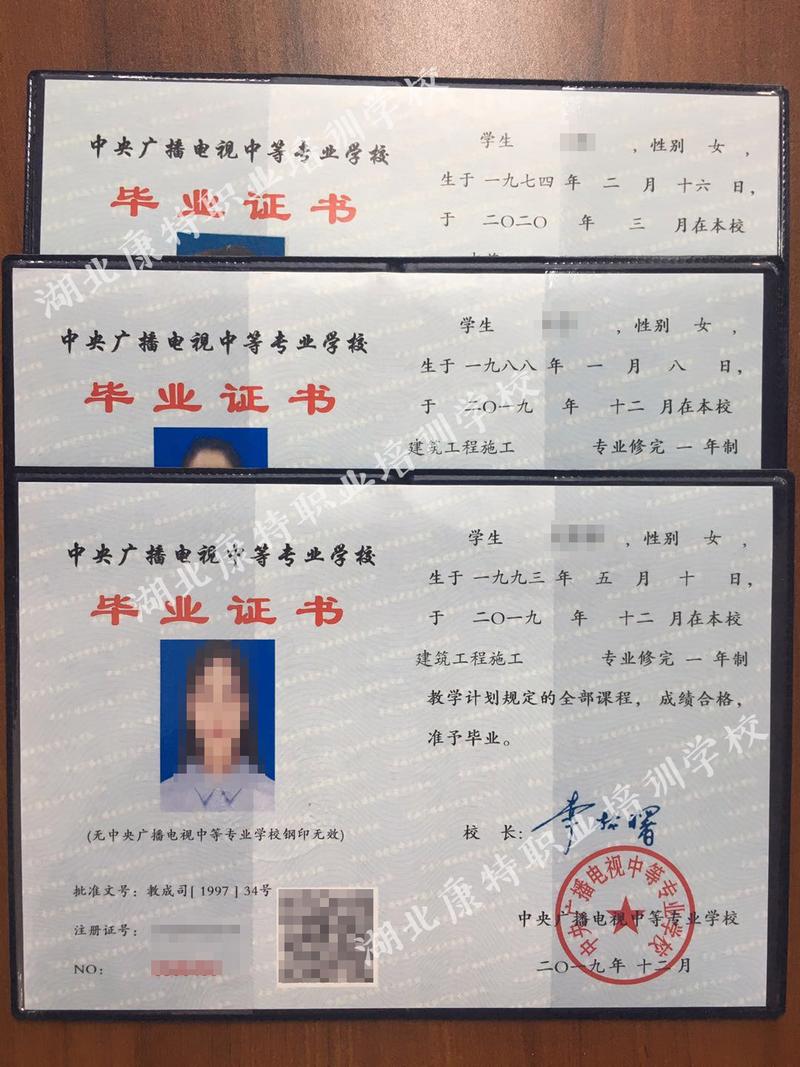 中央广播电视中等专业学校
毕业证书
学生 ，性别 女 ，
生于 一九七四 年 二 月 十六 日，
于 二〇二〇 年 三 月在本校
中央广播电视中等专业学校
毕业证书
学生 ，性别 女 ，
生于 一九八八 年 一 月 八 日，
于 二〇一九 年 十二 月在本校
建筑工程施工 专业修完 一 年制
中央广播电视中等专业学校
毕业证书
(无中央广播电视中等专业学校钢印无效)
批准文号：教成司[1997]34号
注册证号：
NO：
学生 ，性别 女 ，
生于 一九九三 年 五 月 十 日，
于 二〇一九 年 十二 月在本校
建筑工程施工 专业修完 一 年制
教学计划规定的全部课程，成绩合格，
准予毕业。
校 长：
中央广播电视中等专业学校
二〇一九年 十二 月
中央广播电视中等专业学校
湖北康特职业培训学校
湖北康特职业培训学校
湖北康特职业培训学校